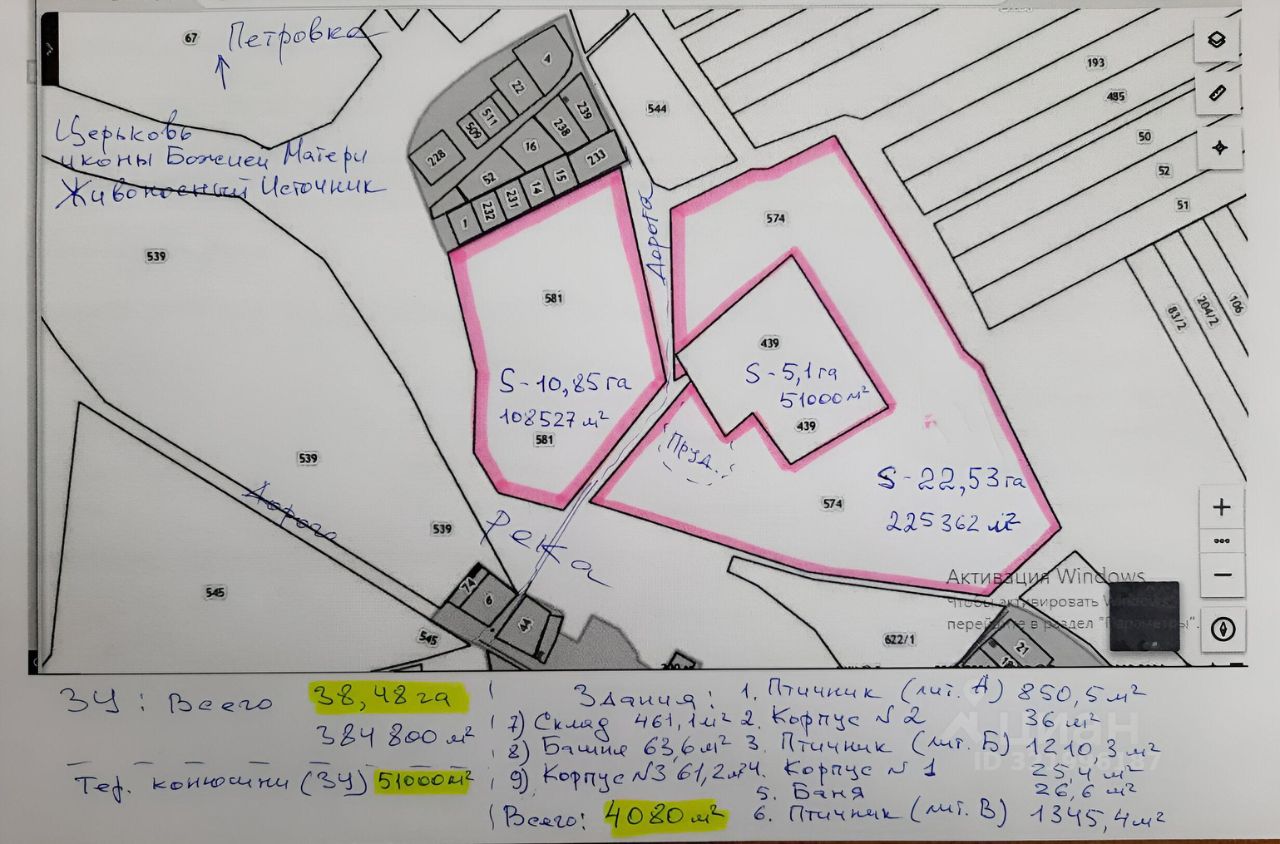 67
Петровка
Церьковь
иконы Божией Матери
Живоносный Источник
4
22
511
509
228
239
238
16
233
52
15
14
231
232
1
544
193
485
50
52
51
83/2
204/2
106
Дорога
574
539
581
439
S-10,85га
108527 м²
581
S-5,1га
51000м²
439
Пруд
539
S-22,53га
225362 м²
574
Дорога
539
Река
545
74
6
44
545
622/1
21
Активация Windows
Чтобы активировать Windows,
перейдите в раздел "Параметры".
ЗУ: Всего 38,48га
384800м²
Тер. конюшни (ЗУ) 51000м²
Здания: 1. Птичник (лит. А) 850,5м²
7) Склад 461,1м² 2. Корпус №2 36м²
8) Башня 63,6м² 3. Птичник (лит. Б) 1210,3м²
9) Корпус №3 61,2м² 4. Корпус №1 25,4м²
5. Баня 26,6м²
Всего: 4080м² 6. Птичник (лит. В) 1345,4м²
ЦИАН